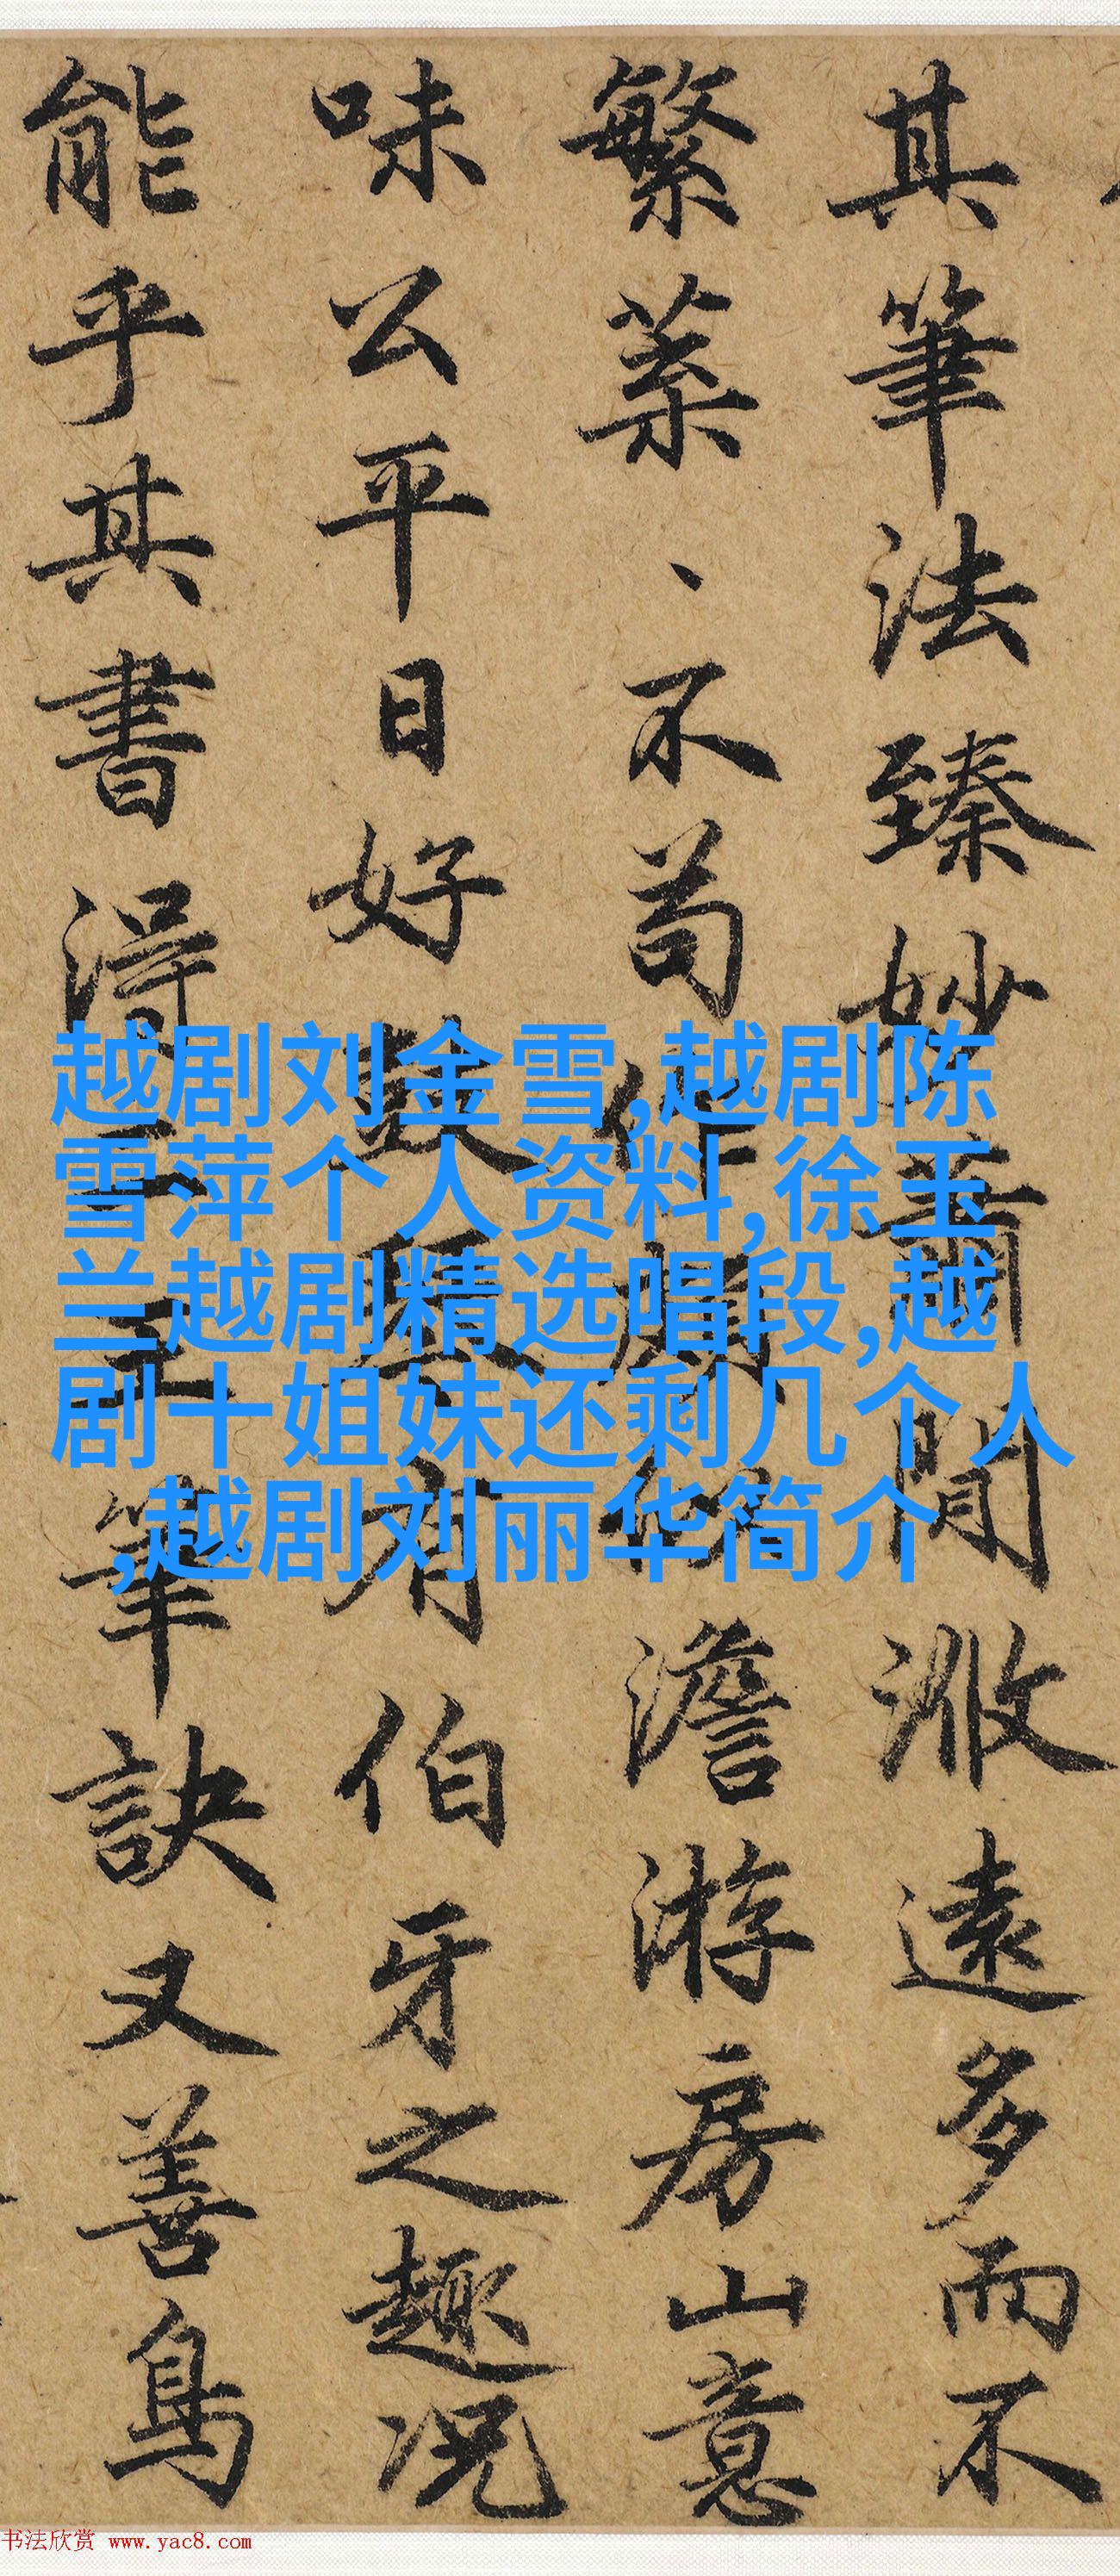 其筆法臻妙閒遠多而不
繁不苟作澹游房山意
味公平日好鼓琴有伯牙之趣況
能乎其書得二王筆訣又善鳥
越剧刘金雪,越剧陈
雪萍个人资料,徐玉
兰越剧精选唱段,越
剧十姐妹还剩几个人
,越剧刘丽华简介
书法欣赏 www.yac8.com